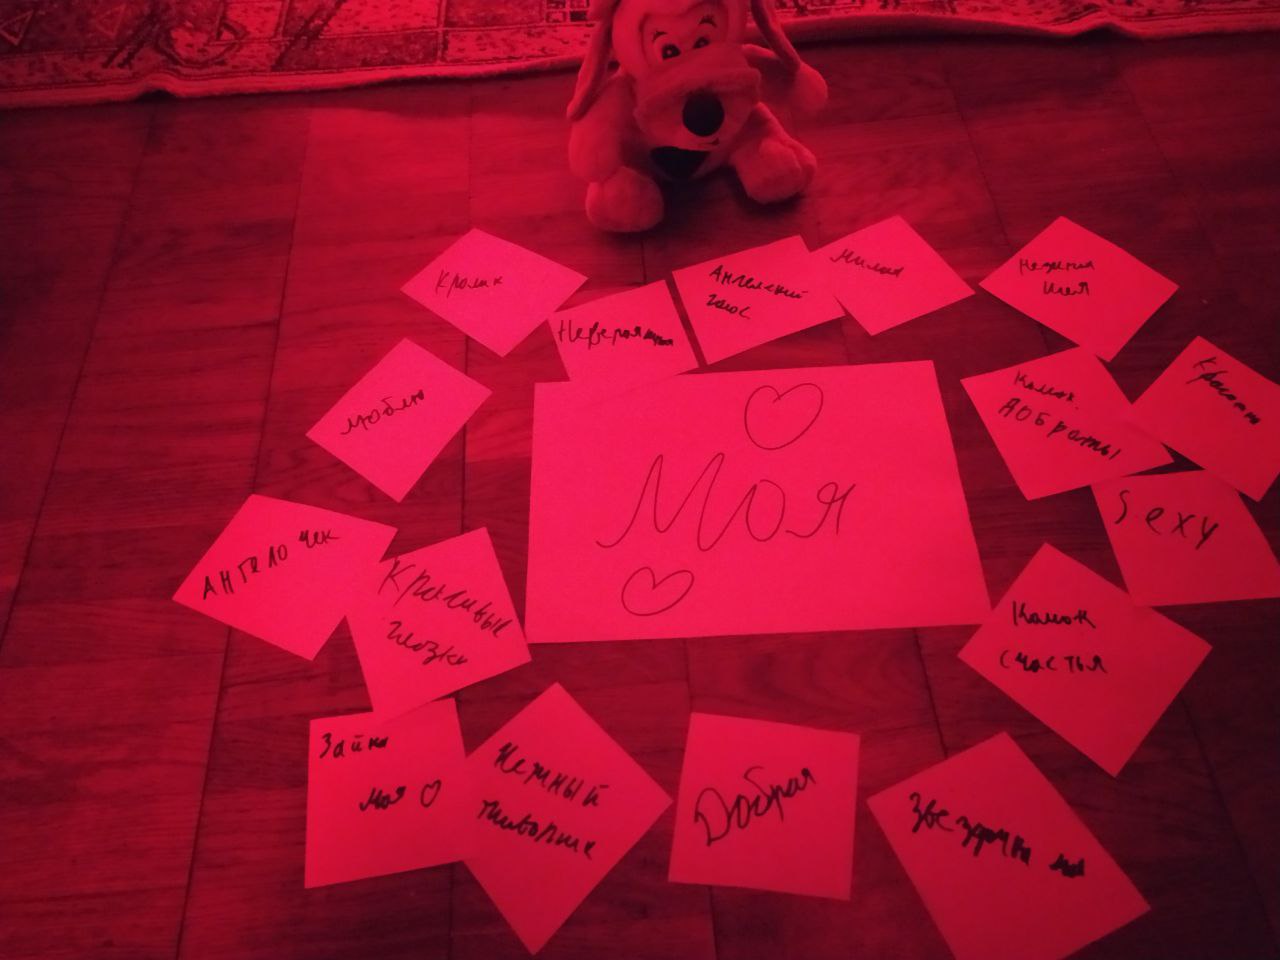 Кролик
Невероятная
Ангелский
голос
Милая
Нежная
шея
люблю
Моя
Комок
добраты
Красотка
Sexy
Ангелочек
Красивые
глозки
Комок
счастья
Зайка
моя
Нежный
животик
Добрая
Звездочка моя